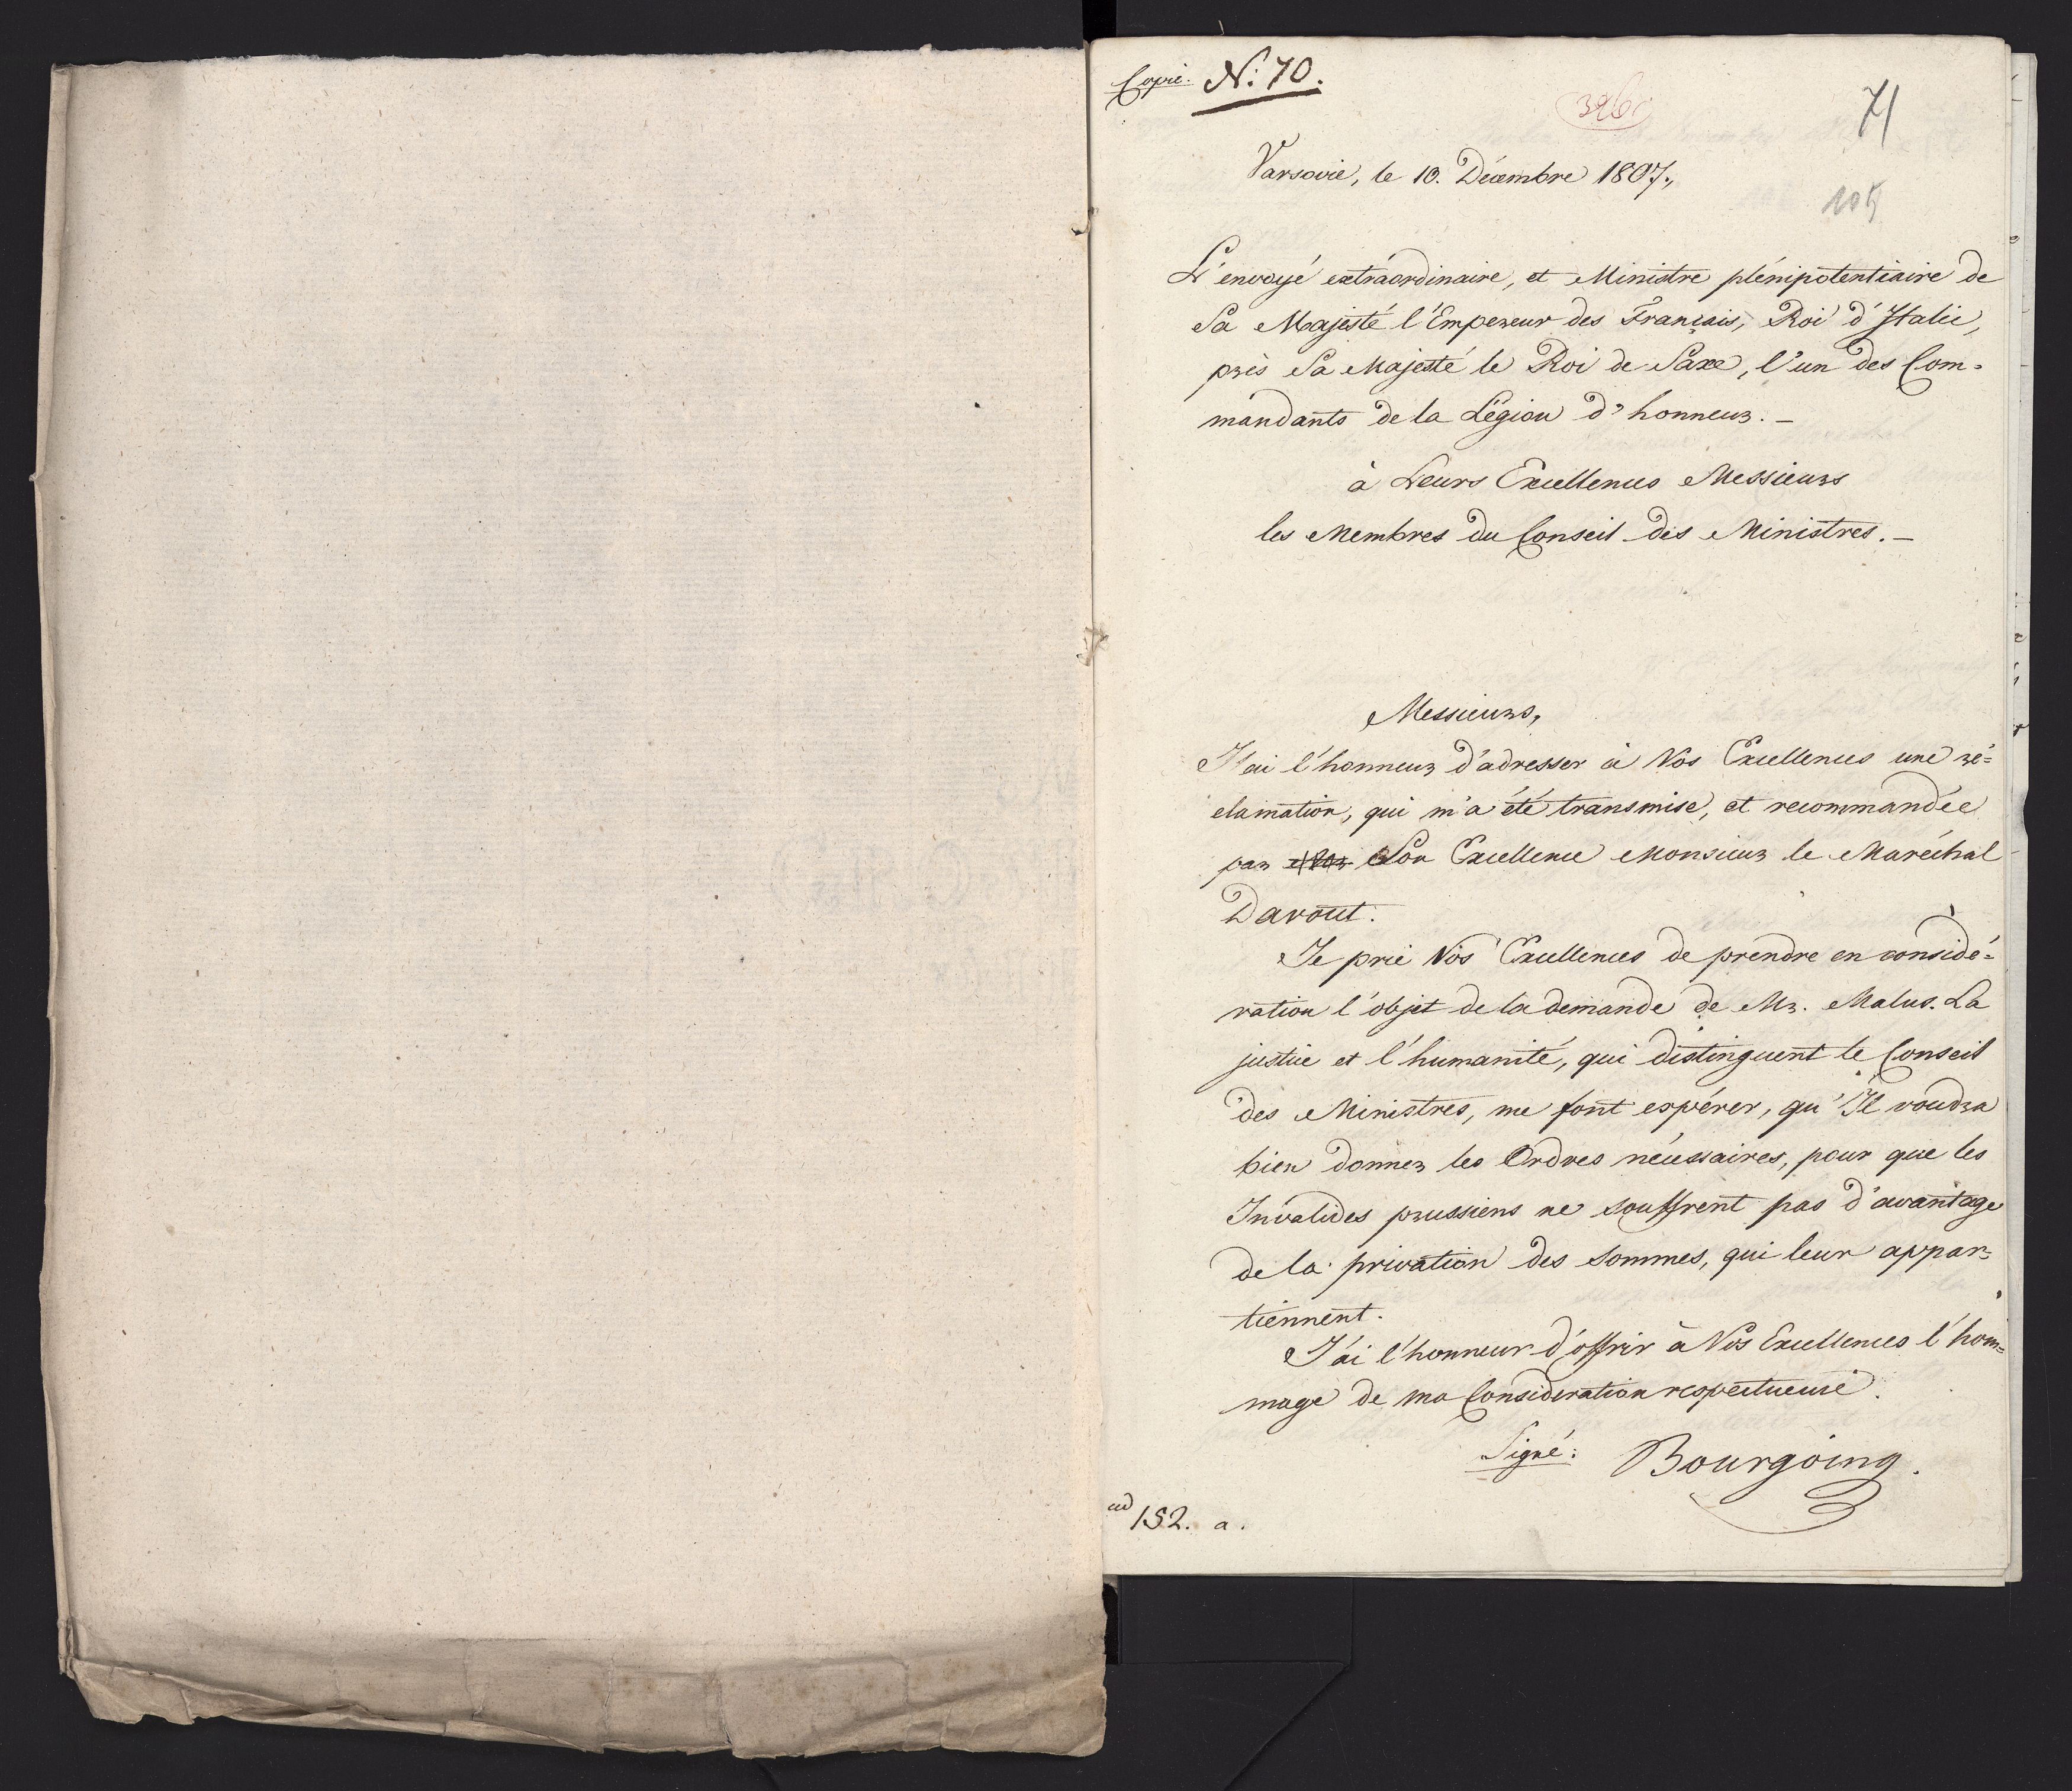 Copie. N: 70.
326
71
Varsovie, le 10. Décembre 1807.,
105
L'envoyé extraordinaire, et Ministre plénipotentiaire de
Sa Majesté l'Empereur des Français, Roi d'Italie,
près Sa Majesté le Roi de Saxe, l'un des Com=
mandants de la Légion d'honneur. _
à Leurs Excellences Messieurs
les Membres du Conseil des Ministres. _
Messieurs,
J'ai l'honneur d'adresser à Vos Excellences une ré=
clamation, qui m'a été transmise, et recommandée
par Son Excellence Monsieur le Maréchal
Davout.
Je prie Vos Excellences de prendre en considé=
ration l'objet de la demande de Mr. Malus. La
justice et l'humanité, qui distinguent le Conseil
des Ministres, me font espérer, qu'Il voudra
bien donner les Ordres nécessaires, pour que les
Invalides prussiens ne souffrent pas d'avantage
de la privation des sommes, qui leur appar=
tiennent.
J'ai l'honneur d'offrir à Vos Excellences l'hom=
mage de ma Considération respectueuse.
Signé: Bourgoing.
ad 152. a.